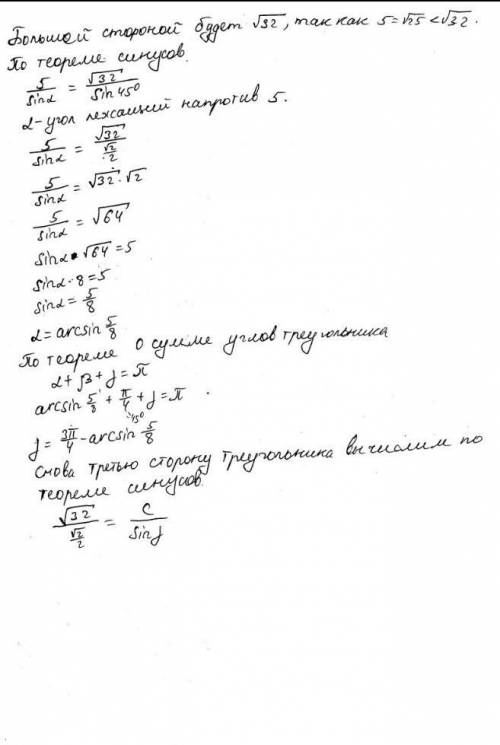 Большей стороной будет √32, так как 5=√25<√32.
По теореме синусов.
5/sinα = √32/sin45°
α-угол лежащий напротив 5.
5/sinα = √32/(√2/2)
5/sinα = √32·√2
5/sinα = √64
sinα·√64=5
sinα·8=5
sinα=5/8
α=arcsin 5/8
По теореме о сумме углов треугольника
α+β+γ=π
arcsin 5/8 + π/4 + γ=π
=45°
γ= 3π/4 - arcsin 5/8
Снова третью сторону треугольника вычислим по
теореме синусов.
√32/(√2/2) = c/sinγ